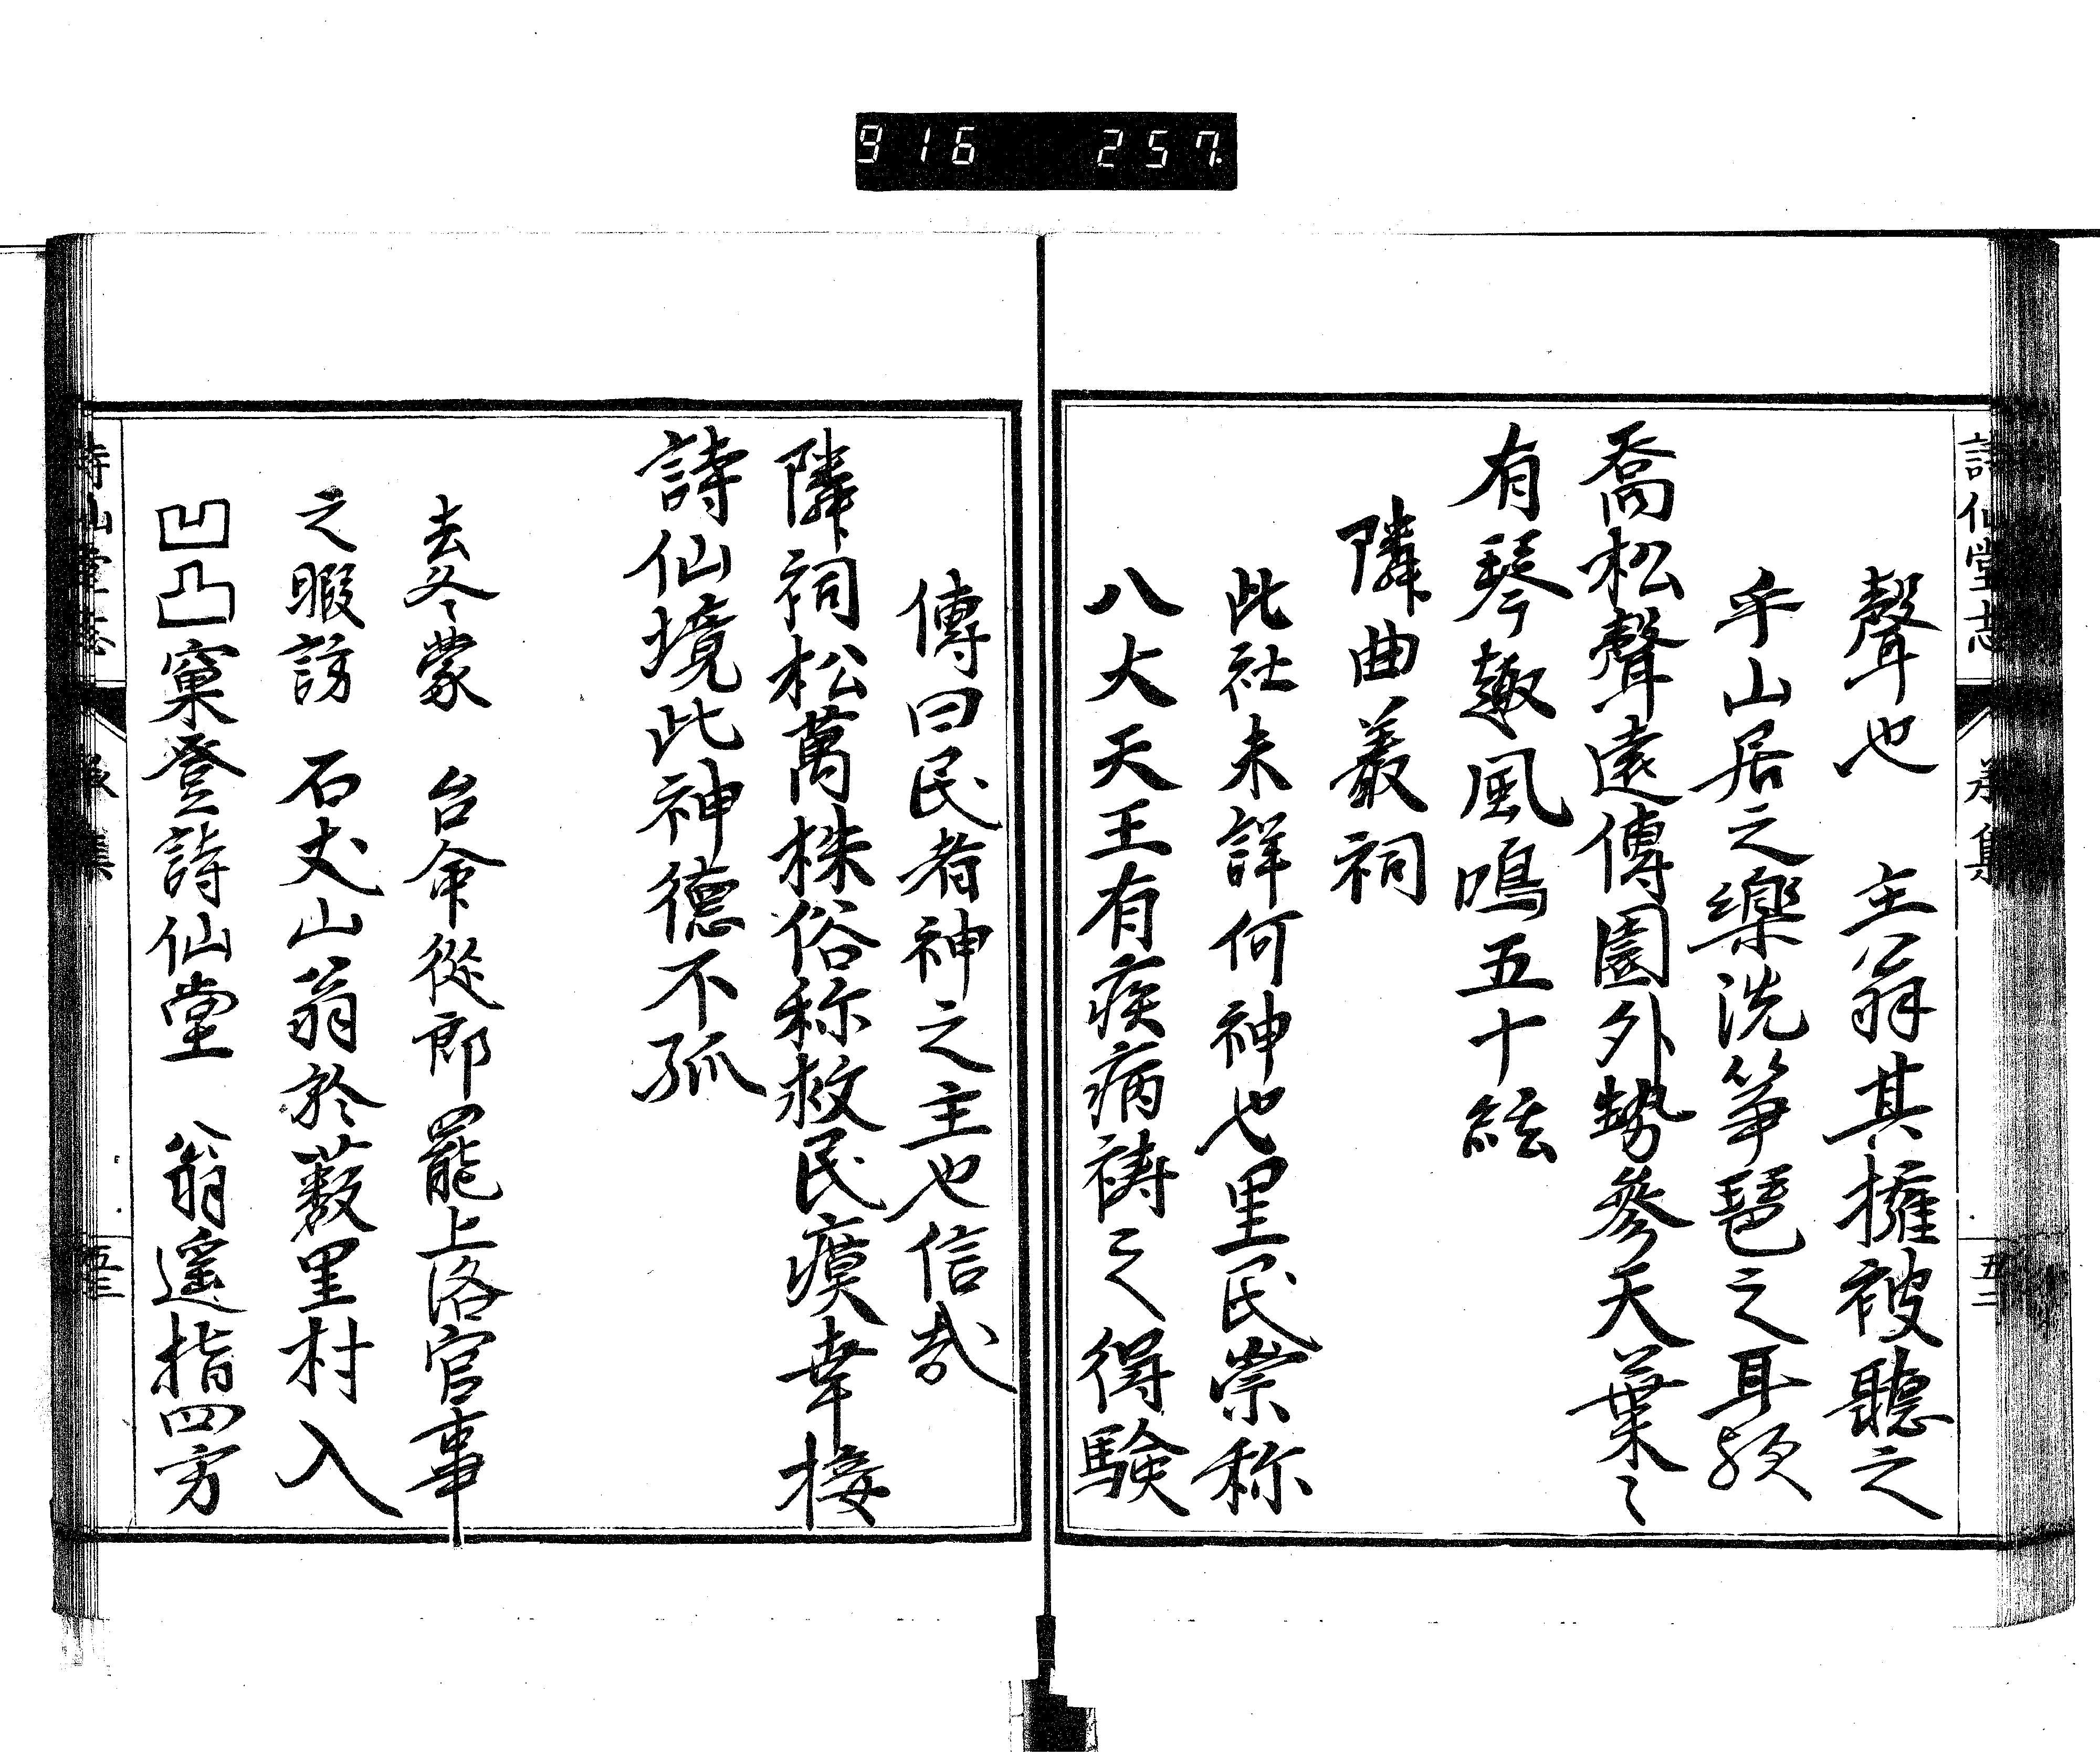 916 257
詩仙堂志
聲也　主翁其擁被聽之
乎山居之樂洗箏琶之耳頰
喬松聲遠傳園外勢參天葉〻
有琴趣風鳴五十絃
隣曲叢祠
此社未詳何神也里民崇称
八大天王有疾病祷之得驗
五二
傳曰民者神之主也信哉
隣祠松萬株俗称救民瘼幸接
詩仙境此神德不孤
去冬蒙　台命從郎罷上洛官事
之暇訪　石丈山翁於薮里村入
凹凸窠登詩仙堂　翁遥指四方